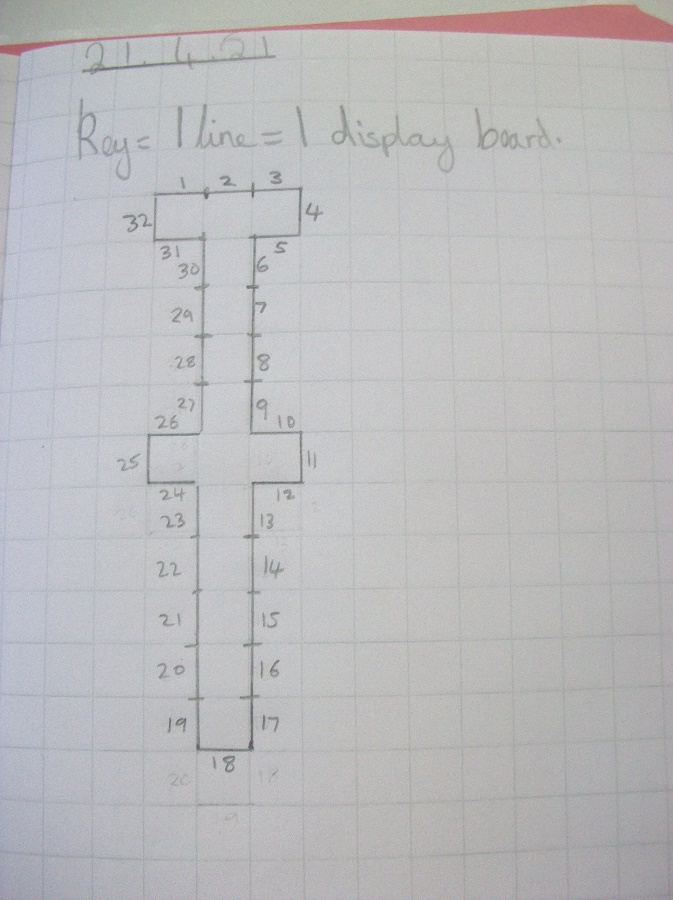 21.4.21
Key= 1 line = 1 display board.
1 2 3
32 4
31 5
30 6
29 7
28 8
27 9
26 10
25 11
24 12
23 13
22 14
21 15
20 16
19 17
18
20 18